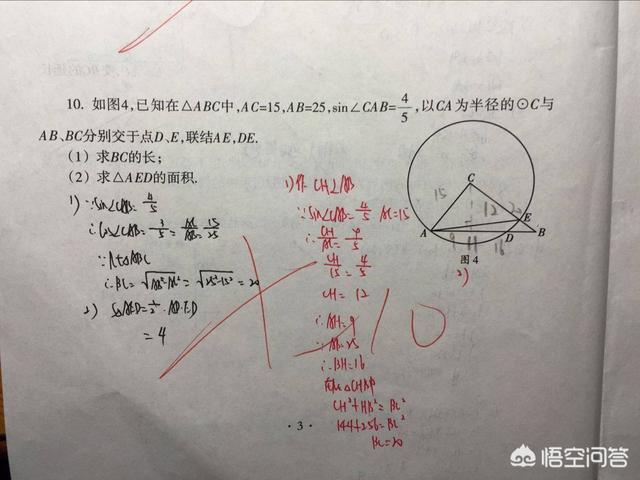 10. 如图4,已知在△ABC中,AC=15,AB=25,sin∠CAB=4/5,以CA为半径的⊙C与
AB、BC分别交于点D、E,联结AE,DE.
(1) 求BC的长;
(2) 求△AED的面积.
1) ∵sin∠CAB=4/5
∴cos∠CAB=3/5=AC/AB=15/25
∵Rt△ABC
∴BC=√AB²-AC²=√25²-15²=20
2) S△AED=1/2·AD·ED
=4
1) 作CH⊥AB
∵sin∠CAB=4/5 AC=15
∴CH/AC=4/5
CH/15=4/5
CH=12
∴AH=9
∵AB=25
∴BH=16
CH²+HB²=BC²
144+256=BC²
BC=20
C
15
12
20
E
A
D
B
9
16
图4
2)
0
·3·
悟空问答